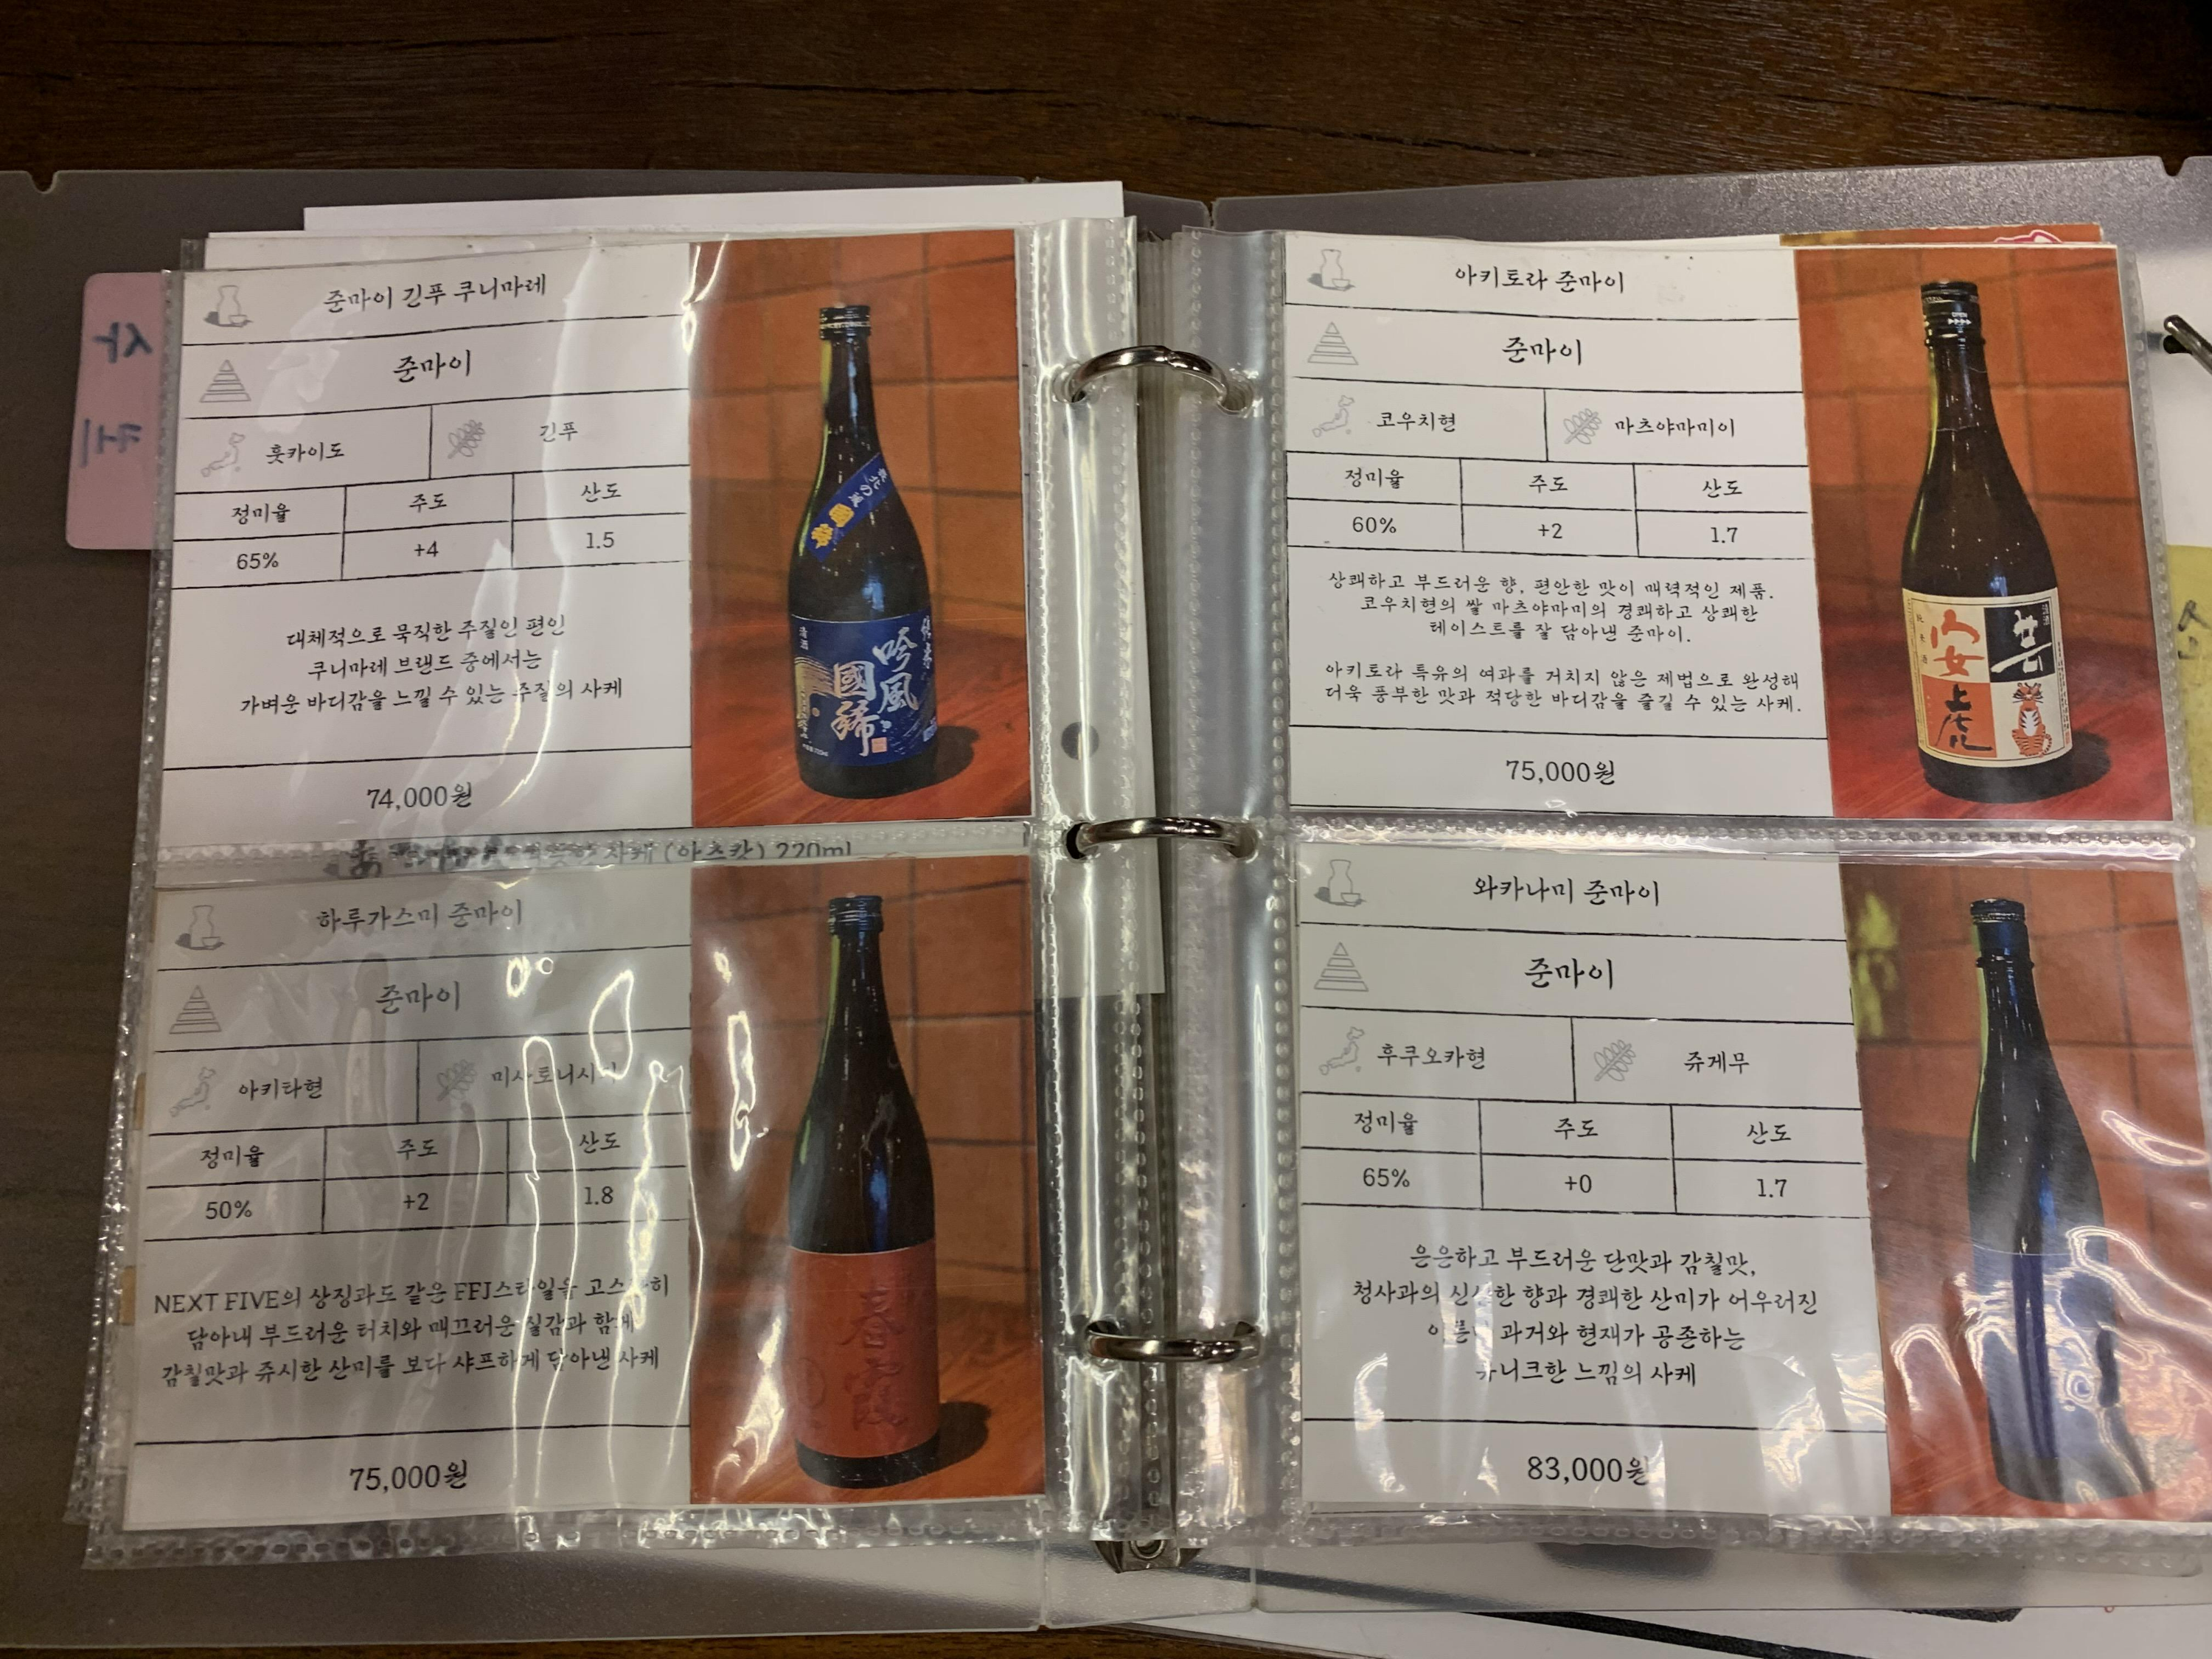 사
케
준마이 긴푸 쿠니마레
준마이
훗카이도
긴푸
정미율
주도
산도
65%
+4
1.5
대체적으로 묵직한 주질인 편인
쿠니마레 브랜드 중에서는
가벼운 바디감을 느낄 수 있는 주질의 사케
74,000원
國稀
清酒
純米
吟風
國稀
사케 (아츠캉) 220ml
하루가스미 준마이
준마이
아키타현
정미율
주도
산도
50%
+2
1.8
NEXT FIVE의 상징과도 같은 FFJ스타일을
담아내 부드러운 터치와 매끄러운 질감과 함께
감칠맛과 쥬시한 산미를 보다 샤프하게 담아낸 사케
75,000원
春霞
아키토라 준마이
준마이
코우치현
마츠야마미이
정미율
주도
산도
60%
+2
1.7
상쾌하고 부드러운 향, 편안한 맛이 매력적인 제품.
코우치현의 쌀 마츠야마미의 경쾌하고 상쾌한
테이스트를 잘 담아낸 준마이.
아키토라 특유의 여과를 거치지 않은 제법으로 완성해
더욱 풍부한 맛과 적당한 바디감을 즐길 수 있는 사케.
75,000원
OPEN
安芸
虎
와카나미 준마이
준마이
후쿠오카현
쥬게무
정미율
주도
산도
65%
+0
1.7
은은하고 부드러운 단맛과 감칠맛,
청사과의 신선한 향과 경쾌한 산미가 어우러진
과거와 현재가 공존하는
유니크한 느낌의 사케
83,000원